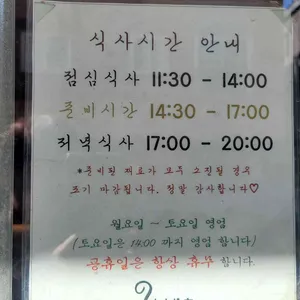 식사시간 안내
점심식사 11:30 - 14:00
준비시간 14:30 - 17:00
저녁식사 17:00 - 20:00
*준비된 재료가 모두 소진될 경우
조기 마감됩니다. 정말 감사합니다♡
월요일 ~ 토요일 영업
(토요일은 14:00 까지 영업 합니다)
공휴일은 항상 휴무 합니다.